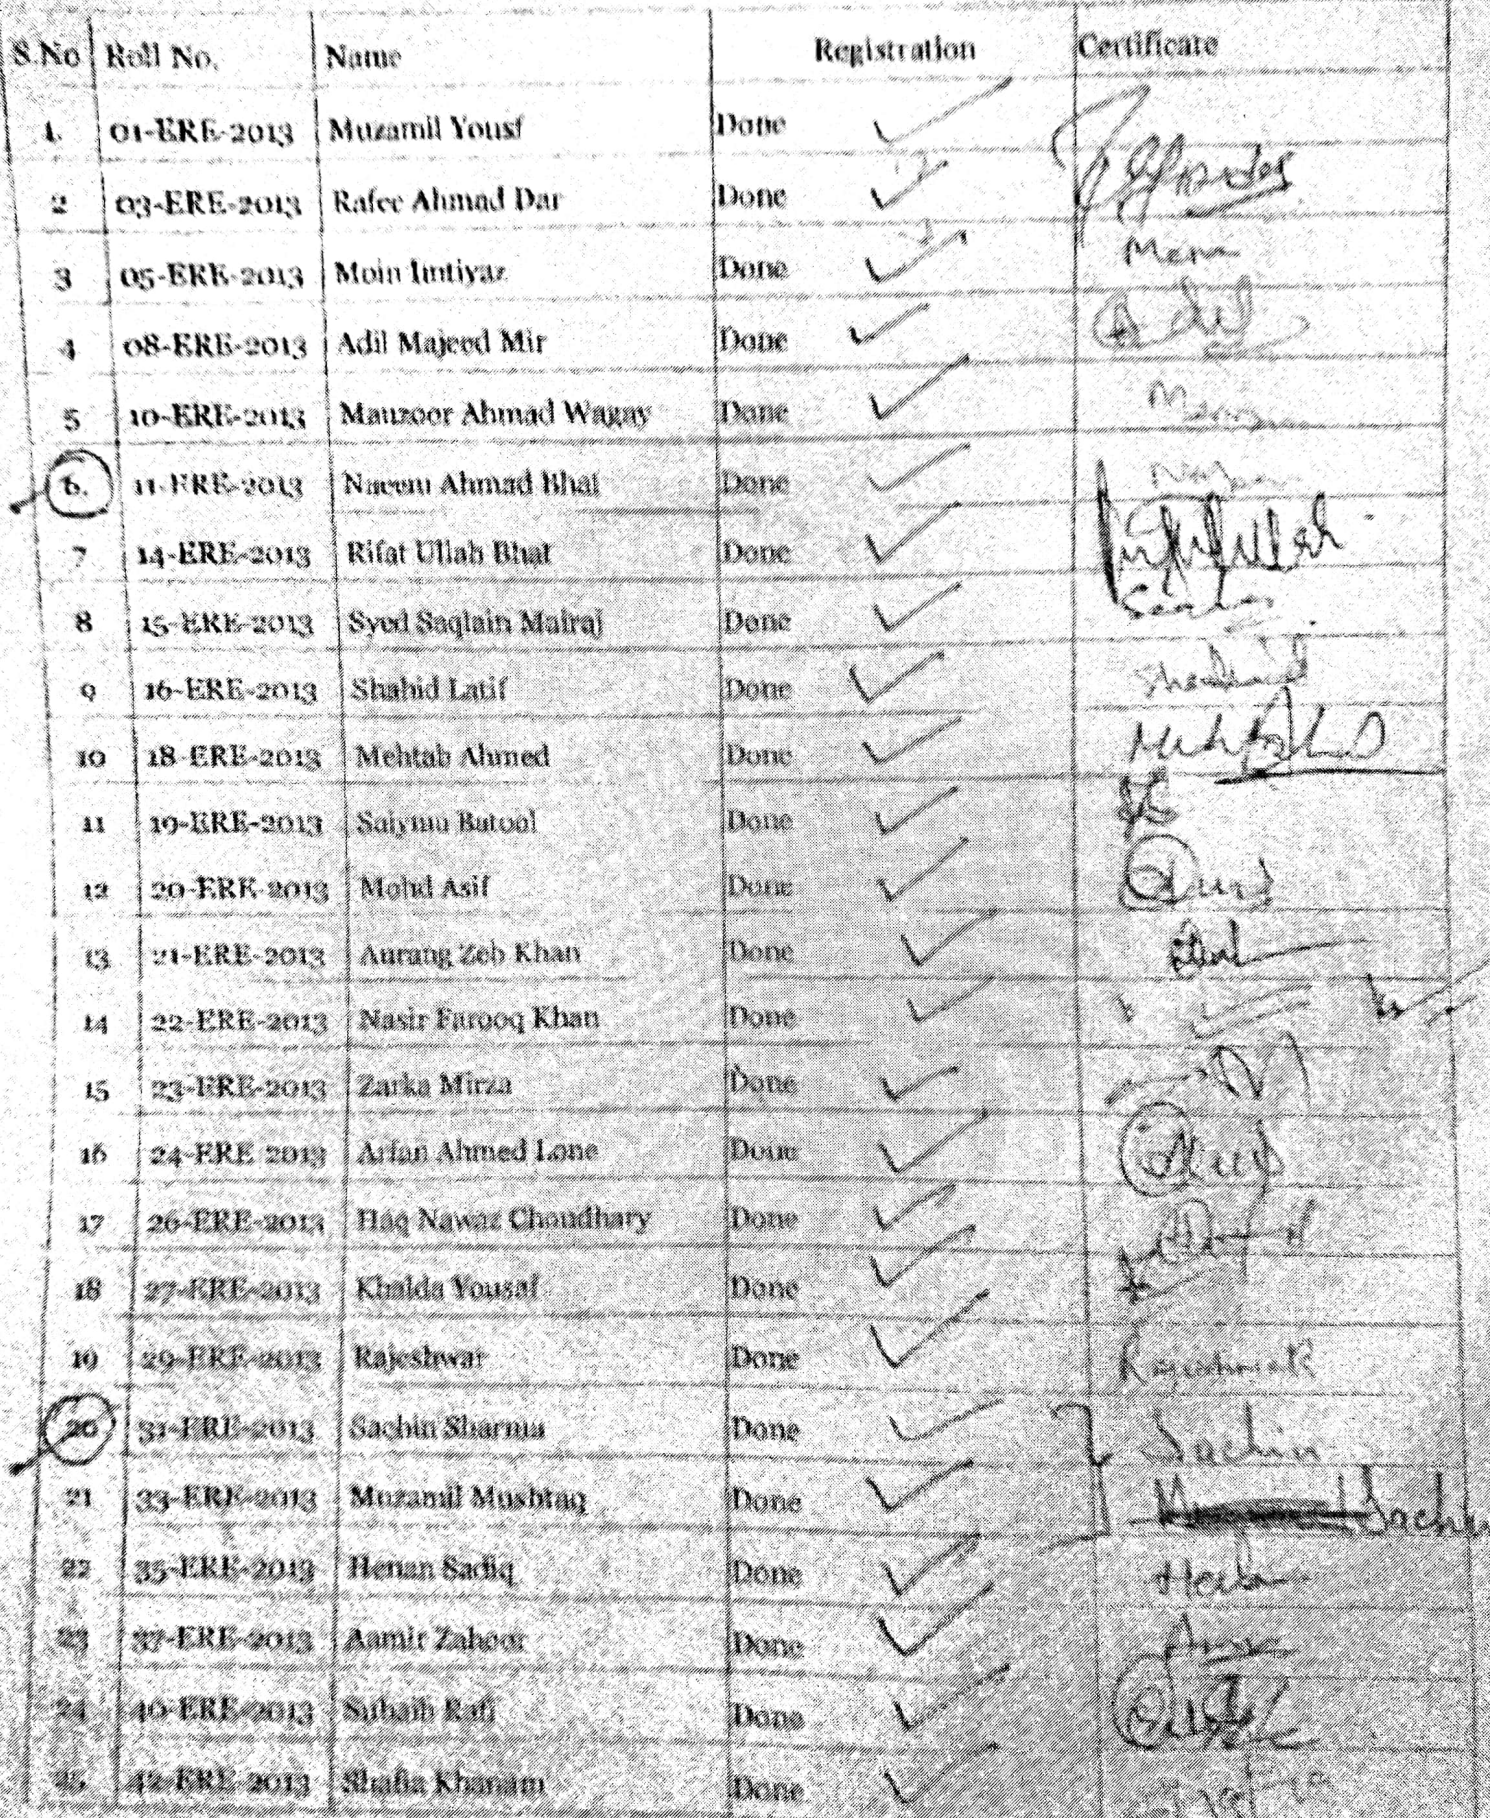 S.No Roll No. Name Registration Certificate
1. 01-ERE-2013 Muzamil Yousf Done
2 03-ERE-2013 Rafee Ahmad Dar Done
3 05-ERE-2013 Moin Imtiyaz Done
4 08-ERE-2013 Adil Majeed Mir Done Adil
5 10-ERE-2013 Manzoor Ahmad Wagay Done
6. 11-ERE-2013 Naeem Ahmad Bhat Done
7 14-ERE-2013 Rifat Ullah Bhat Done
8 15-ERE-2013 Syed Saqlain Mairaj Done
9 16-ERE-2013 Shahid Latif Done Shahid
10 18-ERE-2013 Mehtab Ahmed Done
11 19-ERE-2013 Saiyma Batool Done
12 20-ERE-2013 Mohd Asif Done
13 21-ERE-2013 Aurang Zeb Khan Done
14 22-ERE-2013 Nasir Farooq Khan Done
15 23-ERE-2013 Zarka Mirza Done
16 24-ERE-2013 Arfan Ahmed Lone Done
17 26-ERE-2013 Haq Nawaz Choudhary Done
18 27-ERE-2013 Khalda Yousaf Done
19 29-ERE-2013 Rajeshwar Done
20 31-ERE-2013 Sachin Sharma Done Sachin
21 33-ERE-2013 Muzamil Mushtaq Done Sachin
22 35-ERE-2013 Henan Sadiq Done
23 37-ERE-2013 Aamir Zahoor Done
24 40-ERE-2013 Suhaib Rafi Done
25. 42-ERE-2013 Shafia Khanam Done